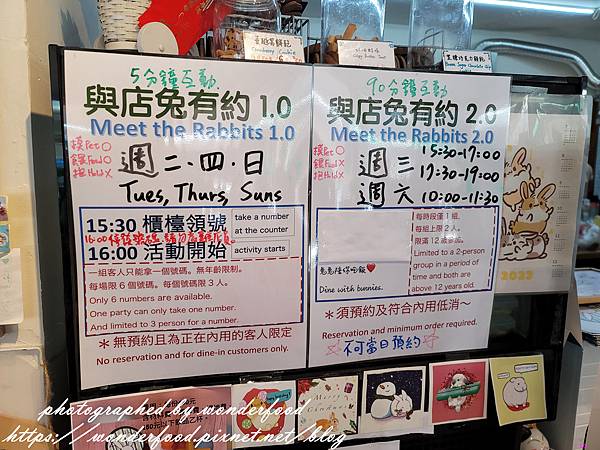 蔓越莓餅乾
Cranberry Cookie
5分鐘互動
與店兔有約 1.0
Meet the Rabbits 1.0
摸Pet○
餵Food○
抱Hold✕
週 二・四・日
Tues, Thurs, Suns
15:30 櫃檯領號
take a number
at the counter
16:00 活動開始
activity starts
一組客人只能拿一個號碼。無年齡限制。
每場限 6 個號碼。每個號碼限 3 人。
Only 6 numbers are available.
One party can only take one number.
And limited to 3 person for a number.
＊無預約且為正在內用的客人限定
No reservation and for dine-in customers only.
90分鐘互動
與店兔有約 2.0
Meet the Rabbits 2.0
摸Pet○
餵Food✕
抱Hold✕
週 三 15:30-17:00
17:30-19:00
週 六 10:00-11:30
兔兔陪你吃飯❤
Dine with bunnies.
每時段僅 1 組。
每組上限 2 人。
限滿 12 歲參加。
Limited to a 2-person
group in a period of
time and both are
above 12 years old.
＊須預約及符合內用低消～
Reservation and minimum order required.
☆不可當日預約☆
2023
photographed by wonderfood
https://wonderfood.pixnet.net/blog